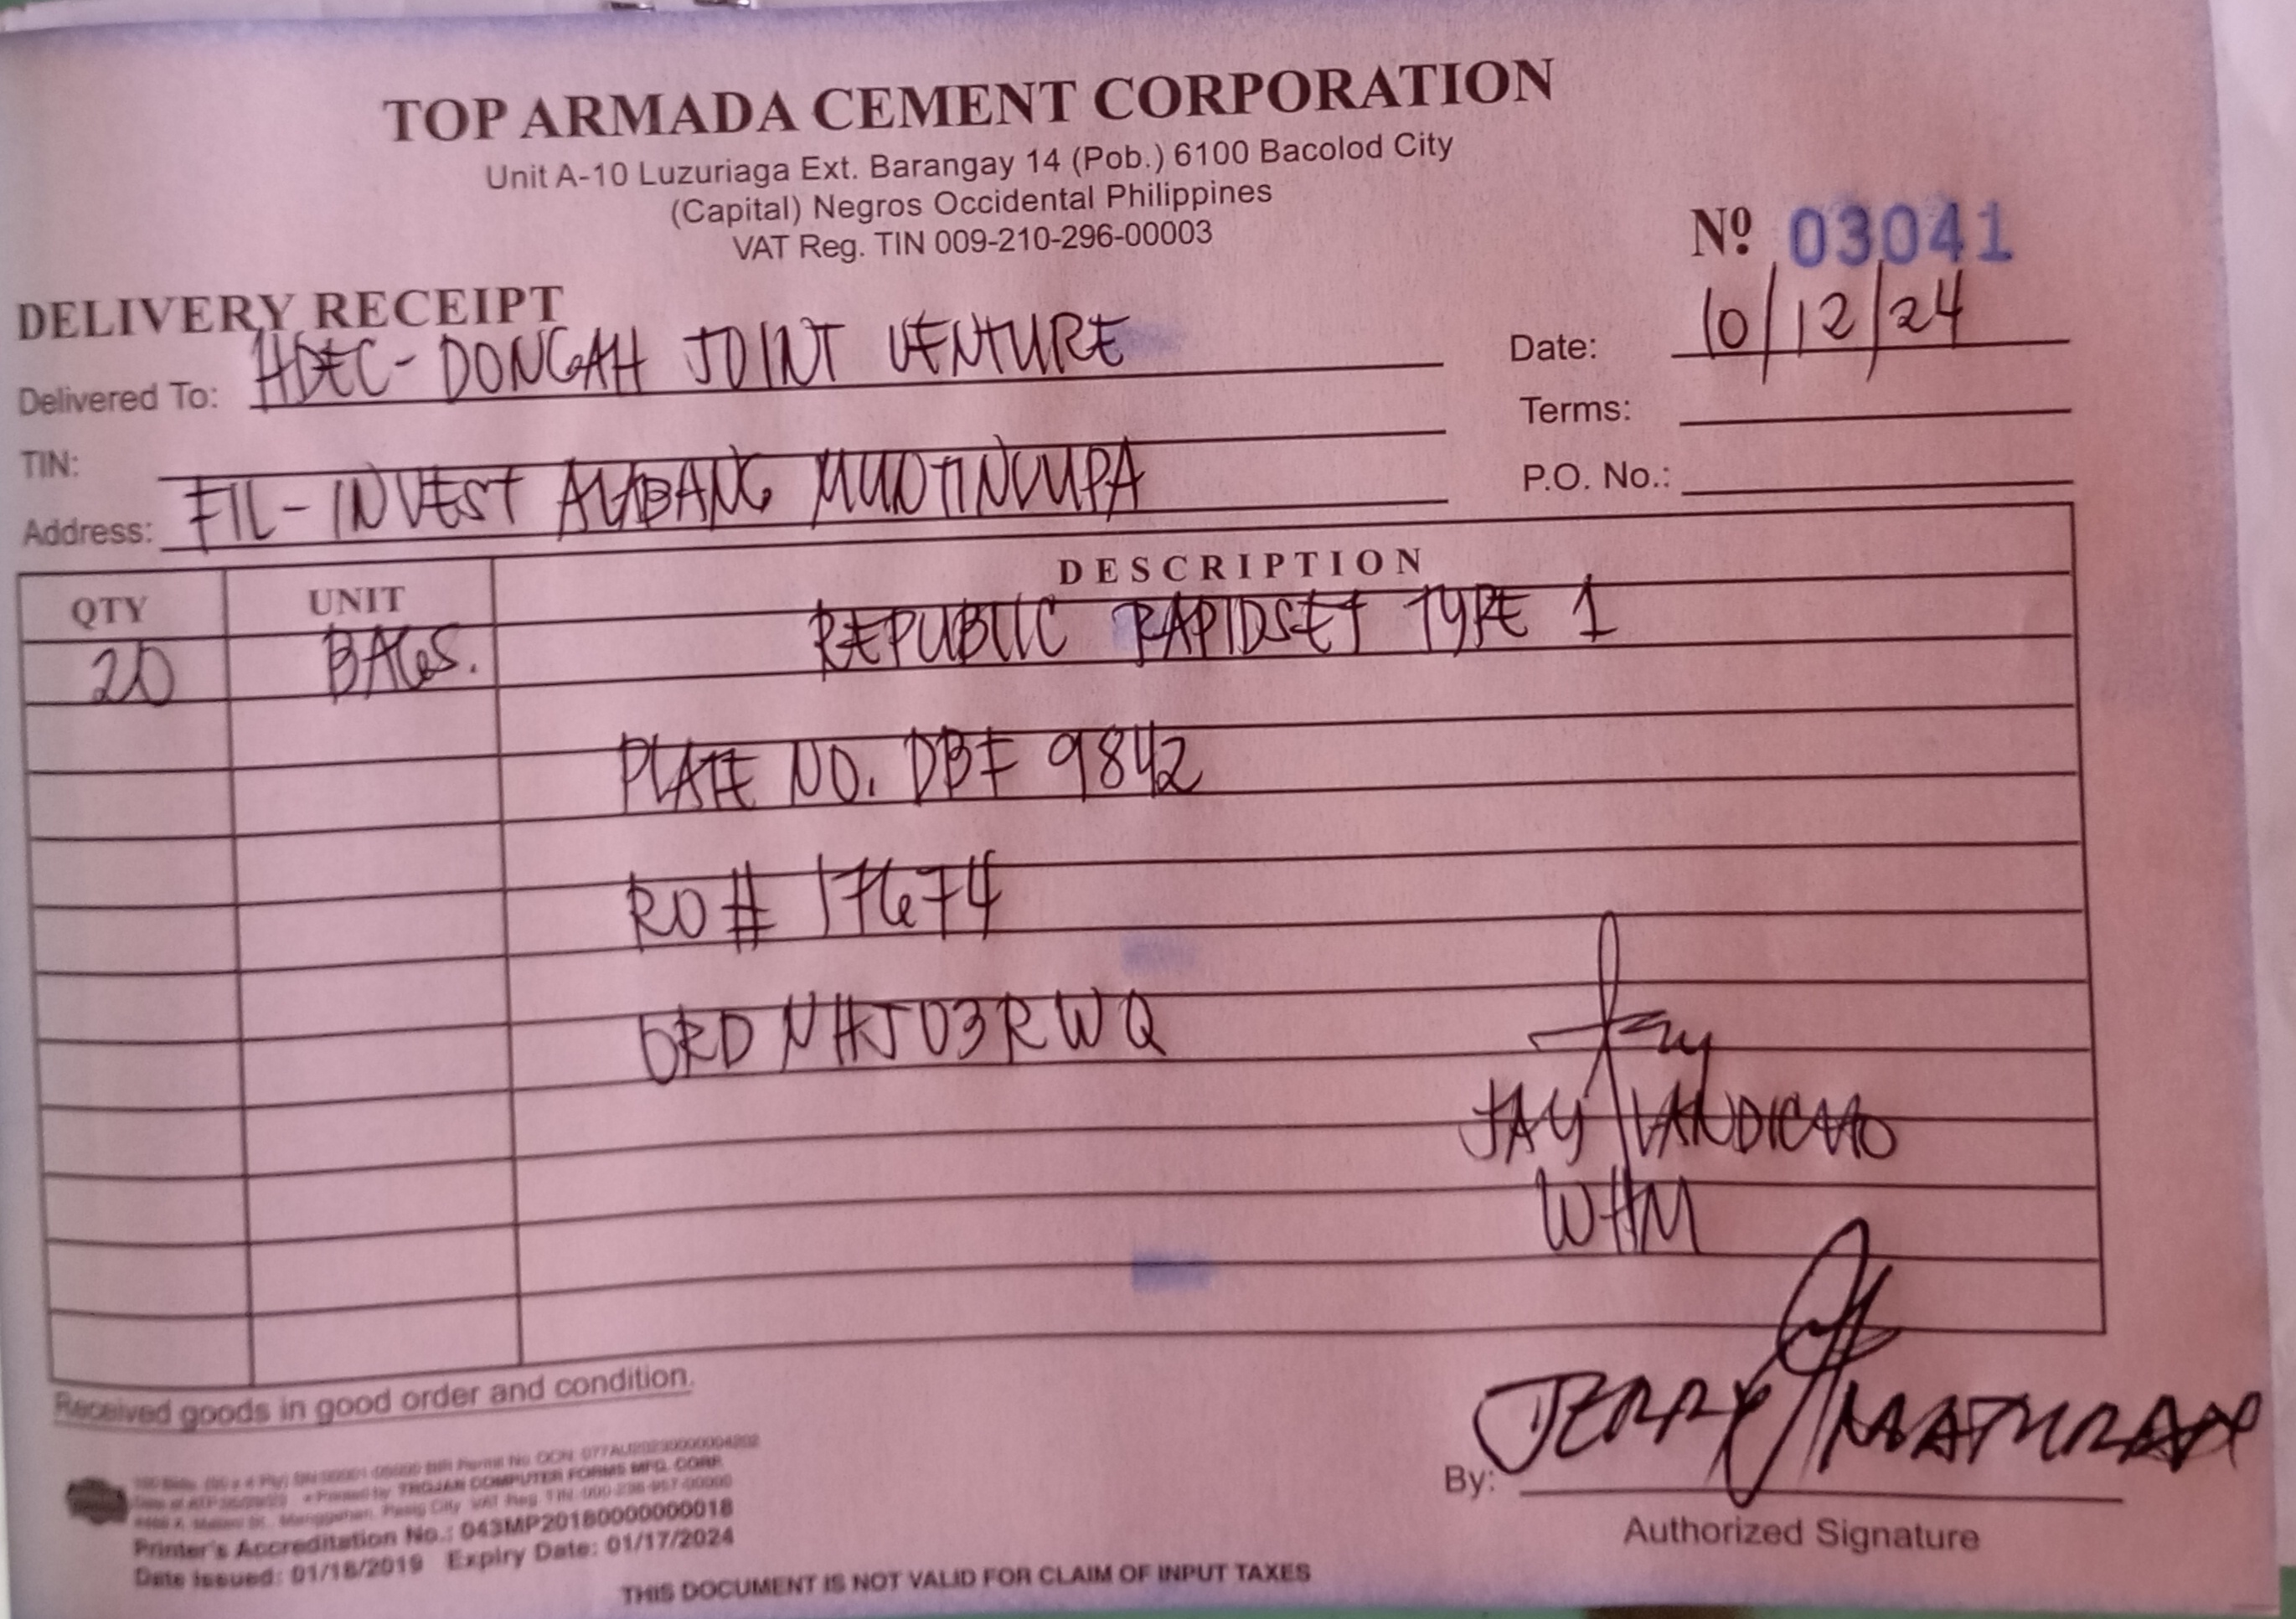 TOP ARMADA CEMENT CORPORATION
Unit A-10 Luzuriaga Ext. Barangay 14 (Pob.) 6100 Bacolod City
(Capital) Negros Occidental Philippines
VAT Reg. TIN 009-210-296-00003
Nº 03041
DELIVERY RECEIPT
Delivered To: HDEC-DONGAH JOINT VENTURE
Date: 10/12/24
TIN:
Terms:
Address: FIL-INVEST ALABANG MUNTINLUPA
P.O. No.:
QTY UNIT DESCRIPTION
20 BAGS. REPUBLIC RAPIDSET TYPE 1
PLATE NO. DBF 9842
RO# 17674
ORD NHJ03RWQ
JAY
WHM
Received goods in good order and condition.
JERRY MATURAN
By:
Authorized Signature
TROJAN COMPUTER FORMS MFG. CORP.
Printer's Accreditation No.: 043MP20180000000018
Date Issued: 01/18/2019 Expiry Date: 01/17/2024
THIS DOCUMENT IS NOT VALID FOR CLAIM OF INPUT TAXES